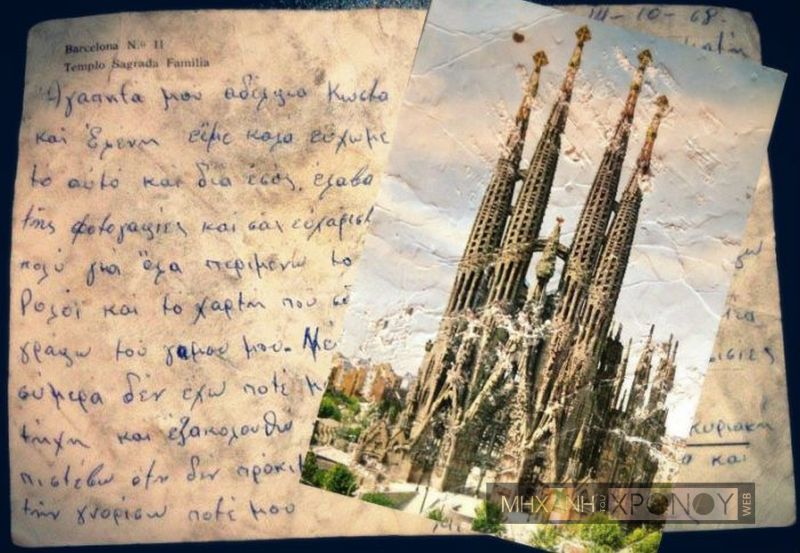 III-10-68.
Barcelona N.º 11
Templo Sagrada Familia
Αγαπητά μου αδέλφια Κωστα
και Έλενη είμε καλα εύχωμε
το αυτό και δια εσάς, έλαβα
της φοτογαφίες και σάς εύχαριστ
πολύ για όλα περιμενω το
Ρολόϊ και το χαρτη που
γραφω του γαμου μου. Μέ
σύμερα δέν εχω ποτέ
τήχη και έξακολουθώ
πιστέβω οτη δεν πρόκι
την γνορίσω ποτέ μου
κυριακη
και
ΜΗΧΑΝΗ ΤΟΥ ΧΡΟΝΟΥ WEB